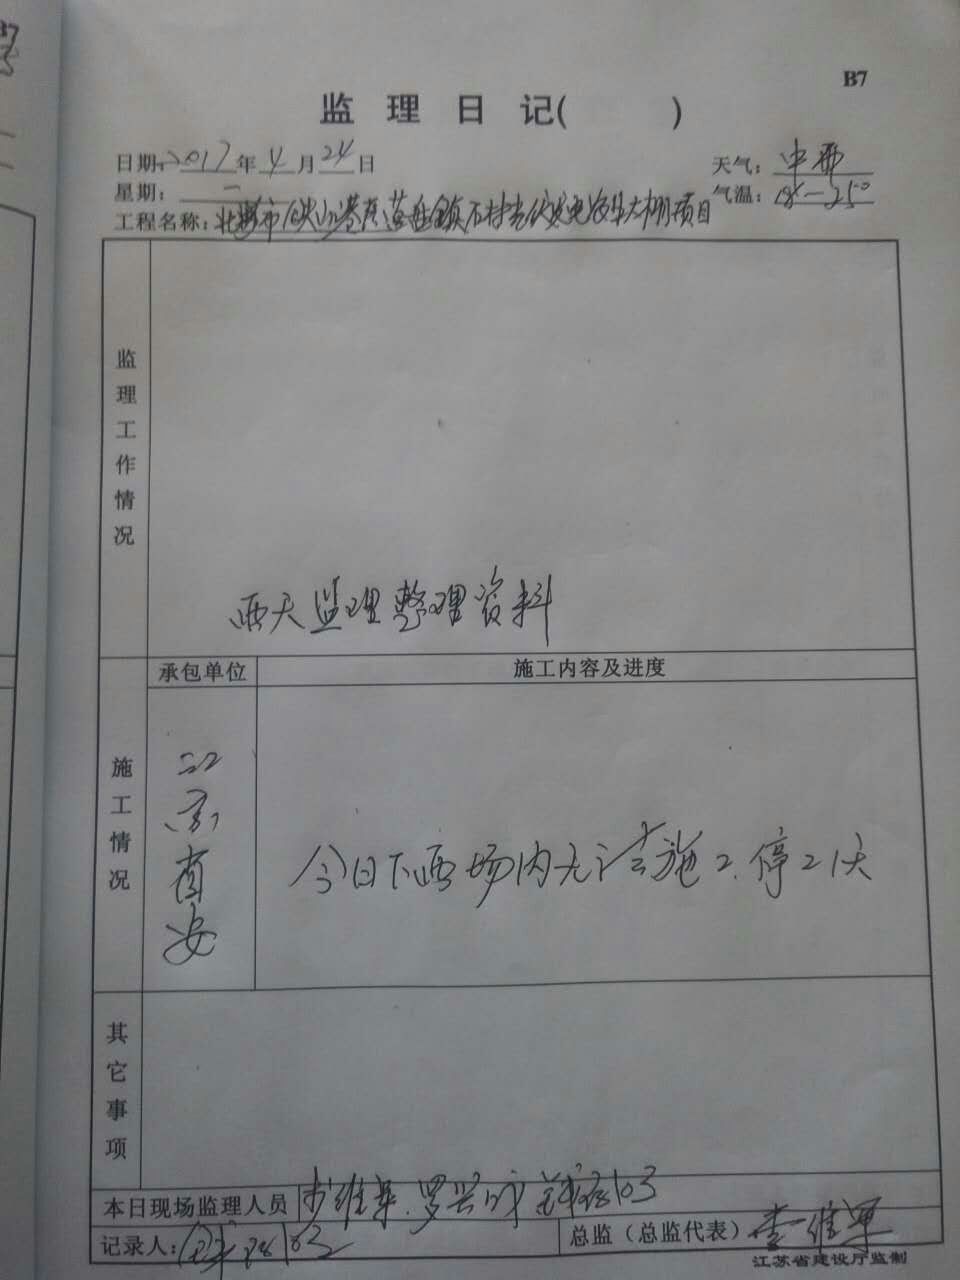 B7
监理日记( )
日期: 2017年4月24日
天气: 中雨
星期: 一
气温: 18-25°
工程名称: 北海市铁山港区 镇 村光伏发电 大棚项目
监理工作情况
雨天监理整理资料
承包单位
施工内容及进度
施工情况
江苏 安
今日下雨场内无法施工.停工1天
其它事项
本日现场监理人员 罗
记录人:
总监（总监代表） 李维军
江苏省建设厅监制